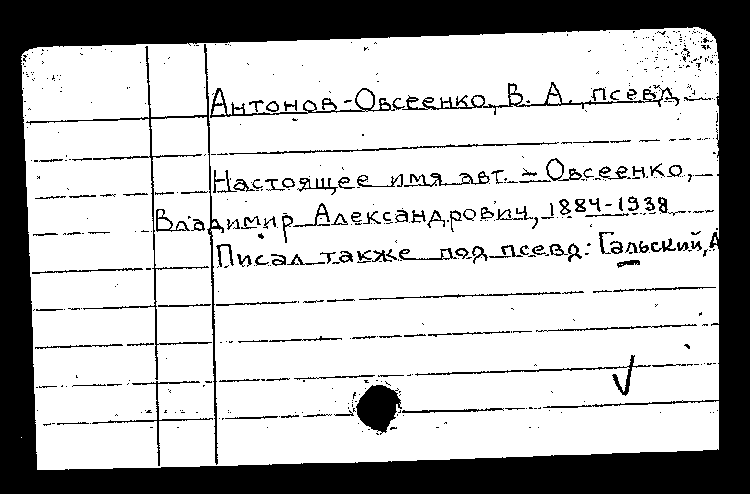 Антонов-Овсеенко, В. А., псевд.
Настоящее имя авт. – Овсеенко,
Владимир Александрович, 1884-1938
Писал также под псевд: Гальский, А